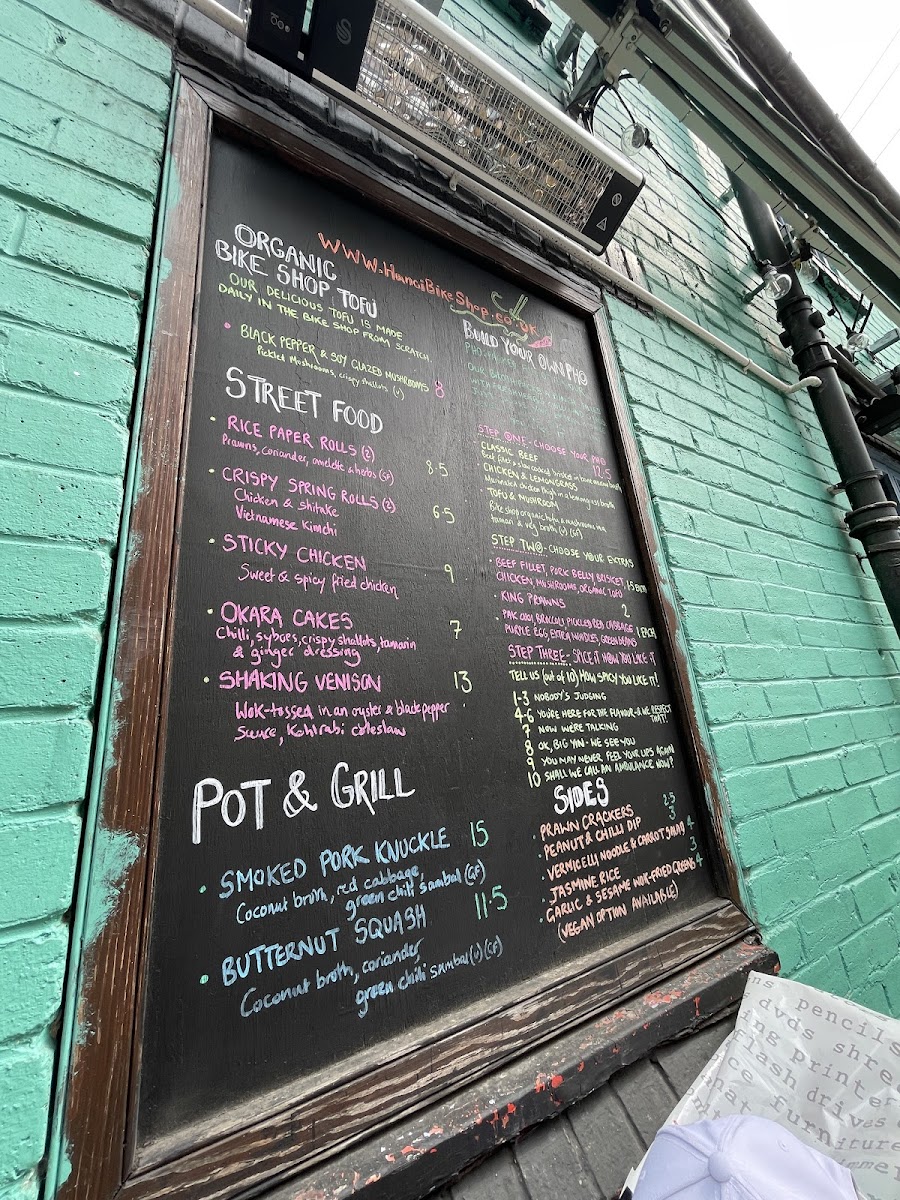 WWW.HanoiBikeShop.co.uk
ORGANIC
BIKE SHOP TOFU
OUR DELICIOUS TOFU IS MADE
DAILY IN THE BIKE SHOP FROM SCRATCH.
BLACK PEPPER & SOY GLAZED MUSHROOMS 8
Pickled Mushrooms, crispy shallots (v)
STREET FOOD
RICE PAPER ROLLS (2)
Prawns, coriander, omelette & herbs (GF) 8.5
CRISPY SPRING ROLLS (2)
Chicken & shitake 6.5
Vietnamese Kimchi
STICKY CHICKEN 9
Sweet & spicy fried chicken
OKARA CAKES 7
Chilli, syboes, crispy shallots, tamarin
& ginger dressing
SHAKING VENISON 13
Wok-tossed in an oyster & black pepper
sauce, Kohlrabi coleslaw
POT & GRILL
SMOKED PORK KNUCKLE 15
Coconut broth, red cabbage,
green chili sambal (GF)
BUTTERNUT SQUASH 11.5
Coconut broth, coriander,
green chili sambal (v) (GF)
BUILD YOUR OWN PHO
OUR BROTH
STEP ONE - CHOOSE YOUR PHO
CLASSIC BEEF 12.5
Beef fillet & slow cooked brisket in bone marrow broth
CHICKEN & LEMONGRASS
Marinated chicken thigh in a lemongrass broth
TOFU & MUSHROOM
Bike shop organic tofu & mushrooms in a
tamari & veg broth (v) (GF)
STEP TWO - CHOOSE YOUR EXTRAS
BEEF FILLET, PORK BELLY, BRISKET,
CHICKEN, MUSHROOMS, ORGANIC TOFU 1.5 EACH
KING PRAWNS 2
PAK CHOI, BROCCOLI, PICKLED RED CABBAGE
PURPLE EGG, EXTRA NOODLES, GREEN BEANS 1 EACH
STEP THREE - SPICE IT HOW YOU LIKE IT
TELL US (out of 10) HOW SPICY YOU LIKE IT!
1-3 NOBODY'S JUDGING
4-6 YOU'RE HERE FOR THE FLAVOUR & WE RESPECT
THAT!
7 NOW WE'RE TALKING
8 OK, BIG YIN - WE SEE YOU
9 YOU MAY NEVER FEEL YOUR LIPS AGAIN
10 SHALL WE CALL AN AMBULANCE NOW?
SIDES
PRAWN CRACKERS 2.5
PEANUT & CHILLI DIP 3
VERMICELLY NOODLE & CARROT SALAD 4
JASMINE RICE 3
GARLIC & SESAME WOK-FRIED GREENS 4
(VEGAN OPTION AVAILABLE)
pencils
dvds shre
ing printer
flash drives
furniture